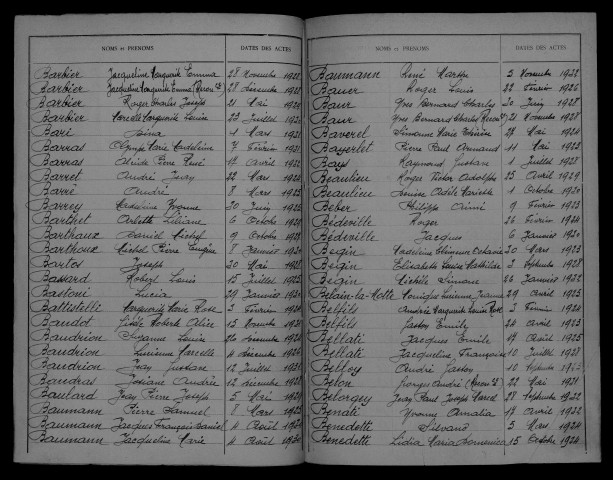 NOMS et PRÉNOMS DATES DES ACTES
Barbier Jacqueline Marguerite Emma 28 Novembre 1928
Barbier Jacqueline Marguerite Emma (Recon ce) 28 décembre 1928
Barbier Roger Charles Joseph 21 Mai
Barbier Marcelle Marguerite Louise 23 Juillet
Bari 4 Mars
Barras Olympe Marie Madeleine 7 Février
Barras Alcide Pierre René 17 Avril
Barret André Jean 22 Mars
Barré André 8 Mars
Barrey Madeleine Yvonne 20 Juin
Barthet Arlette Liliane 6 Octobre
Barthoux Daniel Michel 9 Octobre
Barthoux Michel Pierre Eugène 8 Janvier
Bartos Joseph 20 Mai
Bassard Robert Louis 15 Juillet
Bastoni Lucia 29 Janvier
Battistelli Marguerite Marie Rose 3 Février
Baudot Gisèle Roberte Alice 15 Novembre
Baudrion Suzanne Louise 26 Novembre
Baudrion Lucienne Marcelle 4 décembre
Baudrion Jean Gustave 12 Juillet
Baudras Josiane Andrée 12 décembre
Baulard Jean Pierre Joseph 5 Mai
Baumann Pierre Samuel 8 Mars
Baumann Jacques François Daniel 4 Août
Baumann Jacqueline Marie 4 Août
NOMS et PRÉNOMS DATES DES ACTES
Baumann René Marthe 5 Novembre 1922
Bauer Roger Louis 22 Février 1926
Baur Yves Bernard Charles 30 Juin 1928
Baur Yves Bernard Charles (Recon ce) 21 Novembre 1928
Baverel Simonne Marie 28 Mai 1924
Bayerlet Pierre Paul Armand 11 Mai 1923
Bays Raymond Gustave 1 Juillet 1928
Beaulieu Roger Victor Adolphe 25 Avril 1929
Beaulieu Louise Adèle Mariette 1 Octobre
Beher Philippe Aimé 9 Février 1923
Bédeville Roger 26 Février 1924
Bédeville Jacques 6 Janvier
Begin Madeleine Etiennette Octavie 30 Mars 1923
Begin Elisabeth Louise Mathilde 3 Septembre 1928
Begin Michèle Simone 26 Janvier 1922
Belain-la-Motte Monique Lucienne Jeanne 29 Avril 1923
Belfils Andrée Marguerite Louise Rose 3 Février 1924
Belfils Gaston Emile 24 Avril 1923
Bellati Jacques Emile 17 Août 1925
Bellati Jacqueline Françoise 10 Juillet 1928
Belloy André Gaston 10 Septembre
Belon Georges André (Recon ce) 22 Mai 1921
Belorgey Jean Paul Joseph Marcel 28 Septembre 1922
Benati Yvonne Amalia 17 Avril 1922
Benedetti Silvano 5 Mars 1924
Benedetti Lidia Maria Domenica 15 Octobre 1924